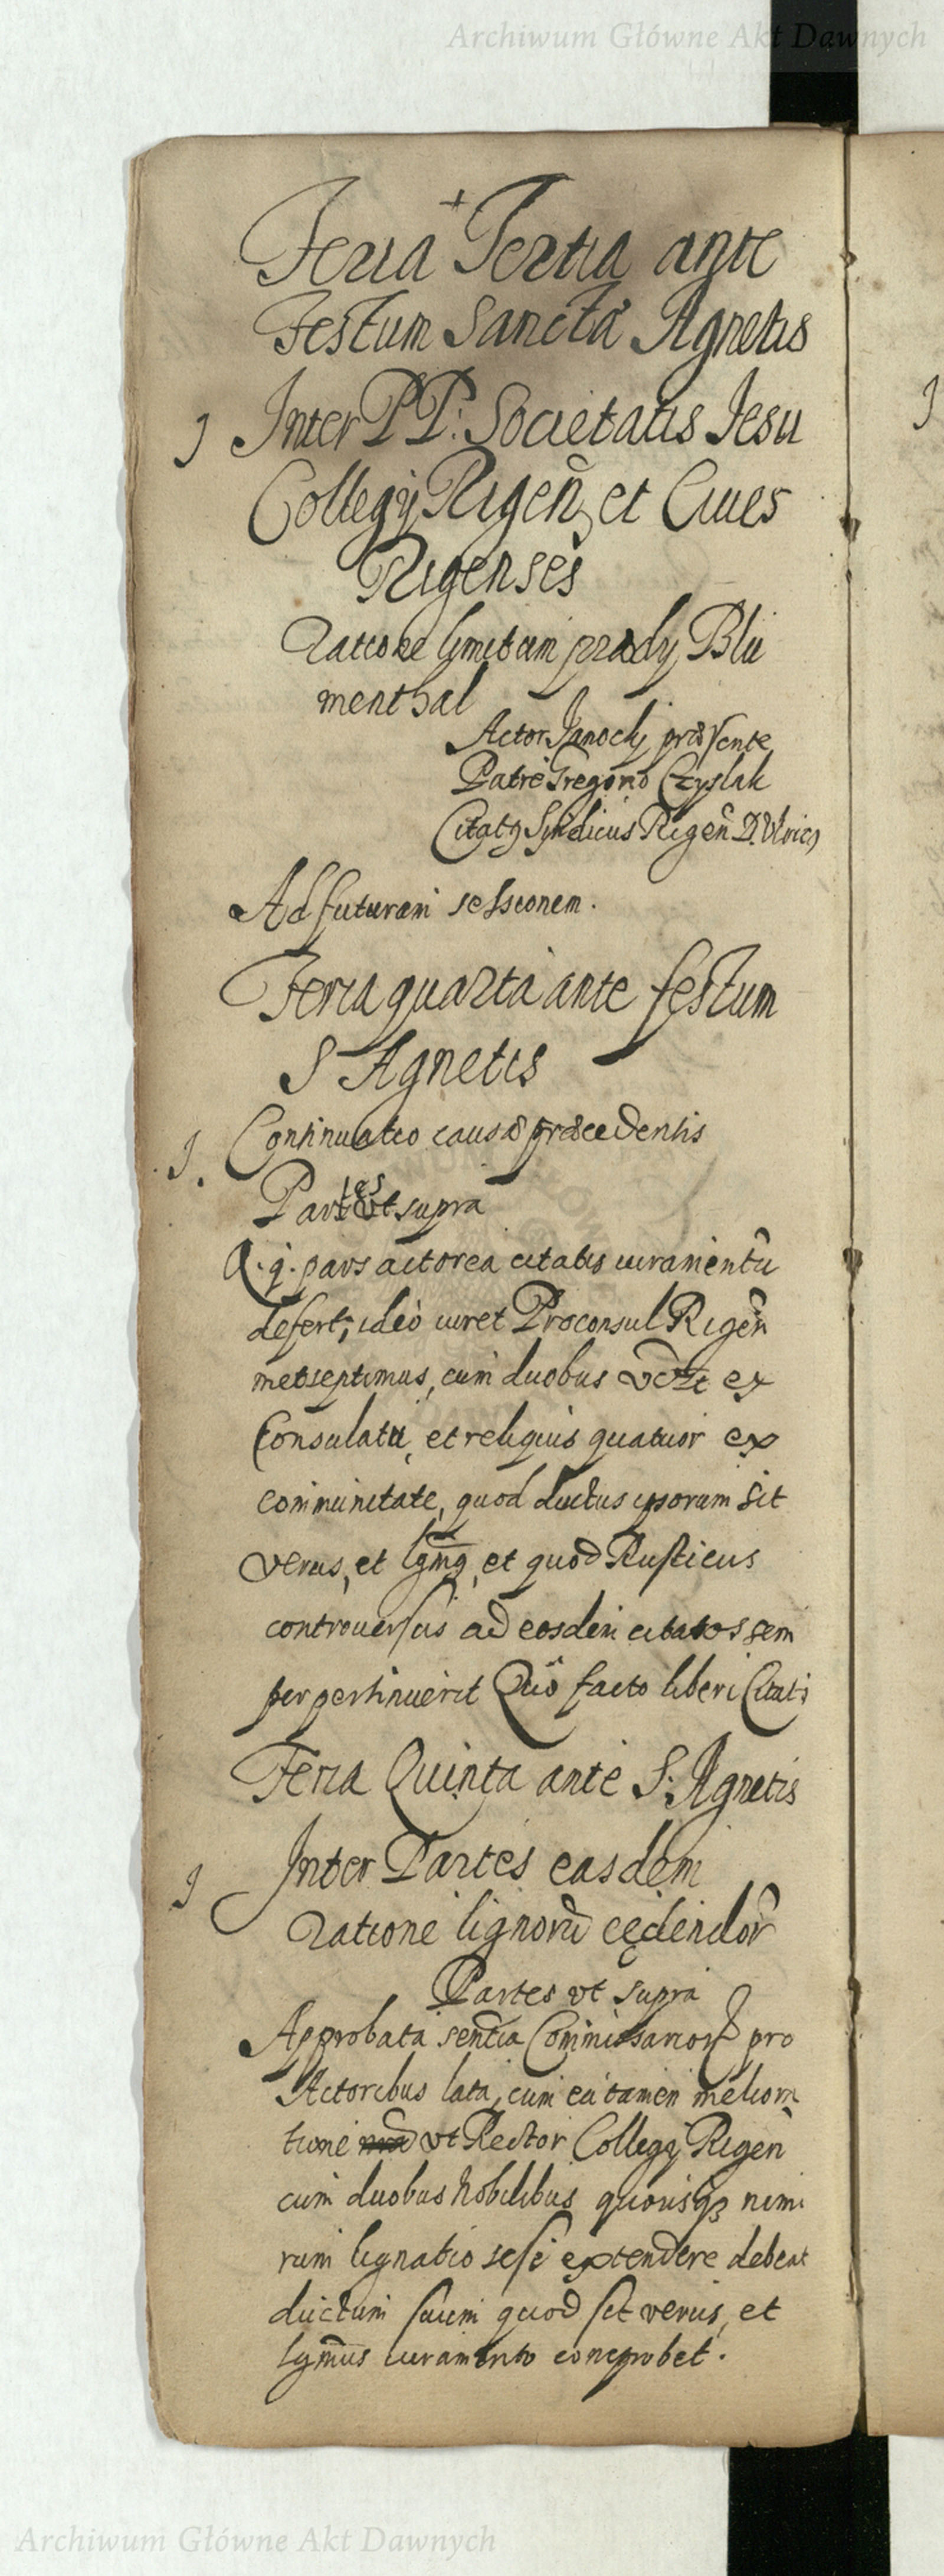 Archiwum Główne Akt Dawnych
+
Feria Tertia ante
Festum Sanctæ Agnetis
1 Inter PP: Societatis Jesu
Collegij Rigeñ et Ciues
Rigenses
Ratione limitum prædij Blu
menthal
Actor Janocki præsente
Patre Gregorio Czyslak
Citatꝯ Syndicus Rigeñ D.
Ad futuram sessionem.
Feria quarta ante festum
S Agnetis
1. Continuatio causæ præcedentis
Partes vt supra
Q. q. pars actorea citatis iuramentũ
defert, ideò iuret Proconsul Rigeñ
metseptimus, cum duobus ex
Consulatu, et reliquis quatuor ex
communitate, quod ductus ipsorum sit
verus, et lgm̃ꝯ, et quod Rusticus
controuersus ad eosdem citatos sem
per pertinuerit Quo facto liberi Citati
Feria Quinta ante S: Agnetis
1 Inter Partes easdem
Ratione lignorũ cędendor̃
Partes vt supra
Approbata sentĩa Commissariorꝝ pro
Actoribus lata, cum ea tamen meliora
tione vt Rector Collegij Rigeñ
cum duobus Nobilibus quousqꝫ nimi
rum lignatio sese extendere debeat
ductum suum quod sit verus, et
lgm̃us iuramento comprobet.
Archiwum Główne Akt Dawnych